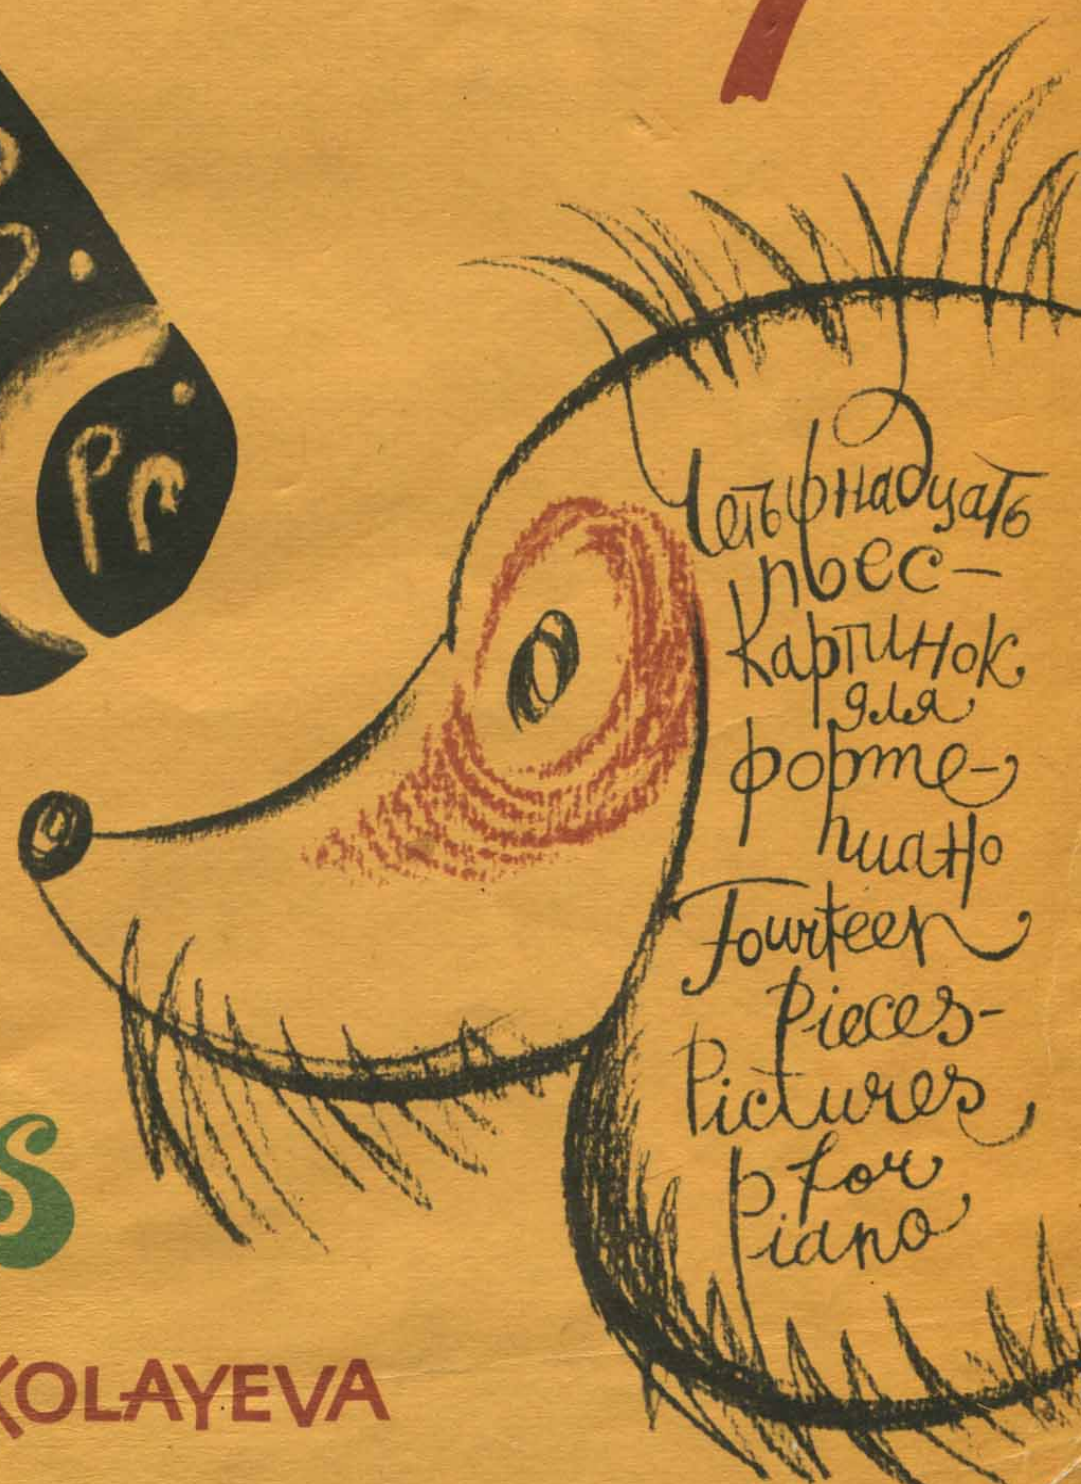 Четырнадцать
пьес-
картинок
для
форте-
пиано
Fourteen
Pieces-
Pictures
for
Piano
S
KOLAYEVA